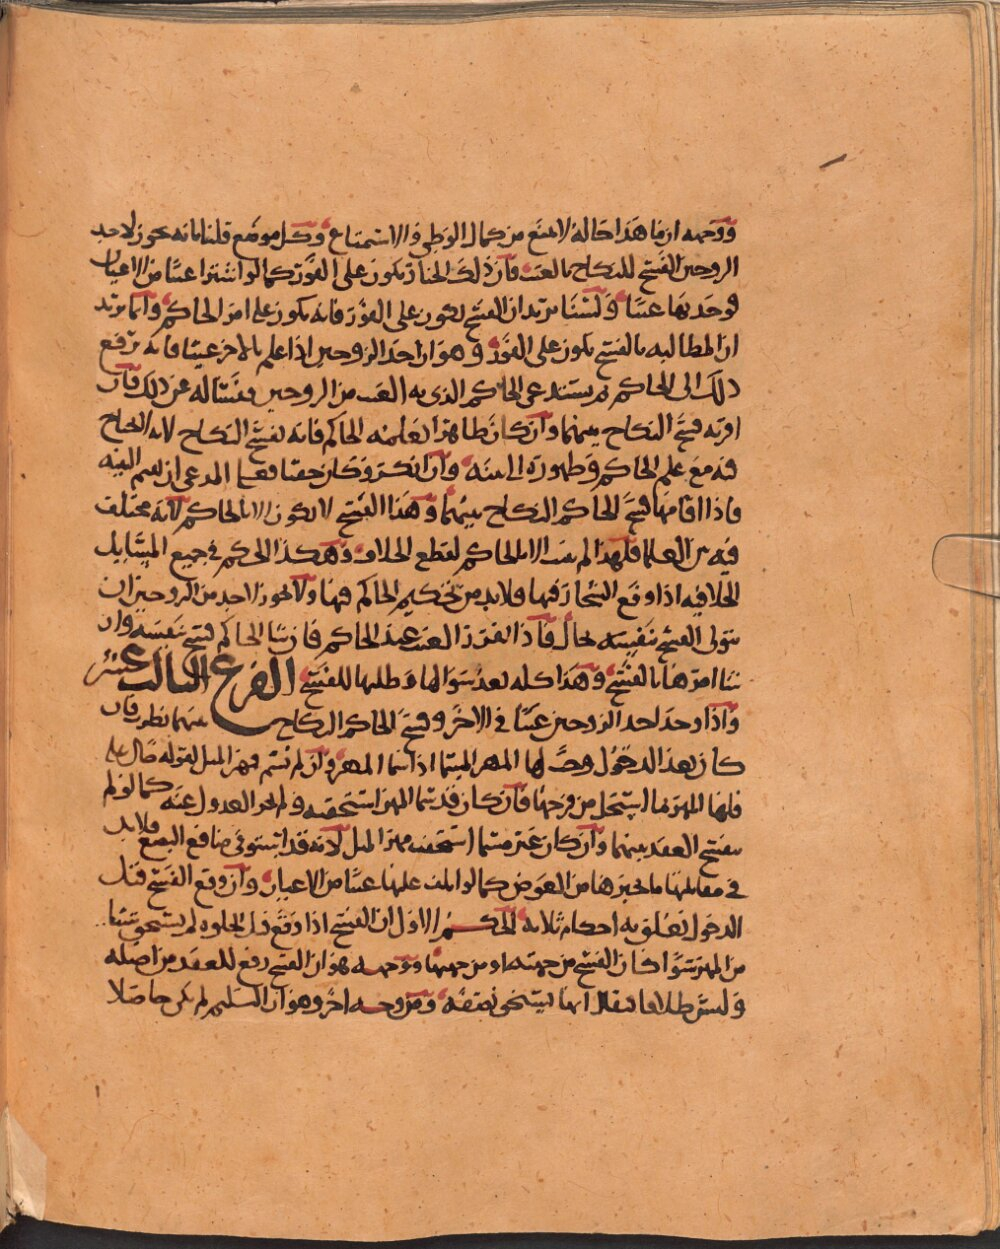 ووجهه ان ما هذا حاله لا يمنع من كمال الوطي والاستمتاع وكل موضع قلنا بانه يجوز لاحد
الزوجين الفسخ للنكاح بالعيب فان ذلك الخيار يكون على الفور كما لو اشترا عينا من الاعيان
فوجد بها عيبا ولسنا نريد ان الفسخ يكون على الفور فانه يكون على امر الحاكم وانما نريد
ان المطالبه بالفسخ يكون على الفور وهو ان احد الزوجين اذا علم بالاخر عيبا فانه يرفع
ذلك الى الحاكم ثم يستدعي الحاكم الذي به العيب من الزوجين فيسأله عن ذلك فان
اقر به فسخ النكاح بينهما وان كان ظاهرا يعلمه الحاكم فانه يفسخ النكاح لانه لا يحتاج
فيه مع علم الحاكم وظهوره الى بينه وان انكر وكان خفيا فعلى المدعي ان يقيم البينه
فاذا اقامها فسخ الحاكم النكاح بينهما وهذا الفسخ لا يكون الا بالحاكم لانه مختلف
فيه بين العلما فلهذا لم يثبت الا بالحاكم لقطع الخلاف وهكذا الحكم في جميع المسايل
الخلافيه اذا وقع التشاجر فيها فلا بد من تحكيم الحاكم فيها ولا يجوز لاحد من الزوجين ان
يتولى الفسخ بنفسه بحال فاذا تقرر العيب عند الحاكم فان شا الحاكم فسخ بنفسه وان
شا امرها بالفسخ وهذا كله بعد سوالها وطلبها للفسخ الفرع الثالث عشر
واذا وجد احد الزوجين عيبا في الاخر وفسخ الحاكم النكاح بينهما نظر فان
كان بعد الدخول وجب لها المهر المسما اذا سما المهر وان لم يسم فمهر المثل لقوله صلى عليه
فلها المهر بما استحل من فرجها فان كان قد سما المهر استحقته ولم يجز العدول عنه كما لو لم
يفسخ العقد بينهما وان كان غير مسما استحقت مهر المثل لانه قد استوفى منافع البضع فلا بد
في مقابلتها ما يجبرها من العوض كما لو اتلف عليها عينا من الاعيان وان وقع الفسخ قبل
الدخول تعلق به احكام ثلاثه الحكم الاول ان الفسخ اذا وقع قبل الخلوه لم يستحق شيئا
من المهر سوا كان الفسخ من جهته او من جهتها ووجهه هو ان الفسخ رفع للعقد من اصله
وليس طلاقا فيقال انها تستحق نصفه ومن وجه اخر وهو ان التسليم لم يكن حاصلا